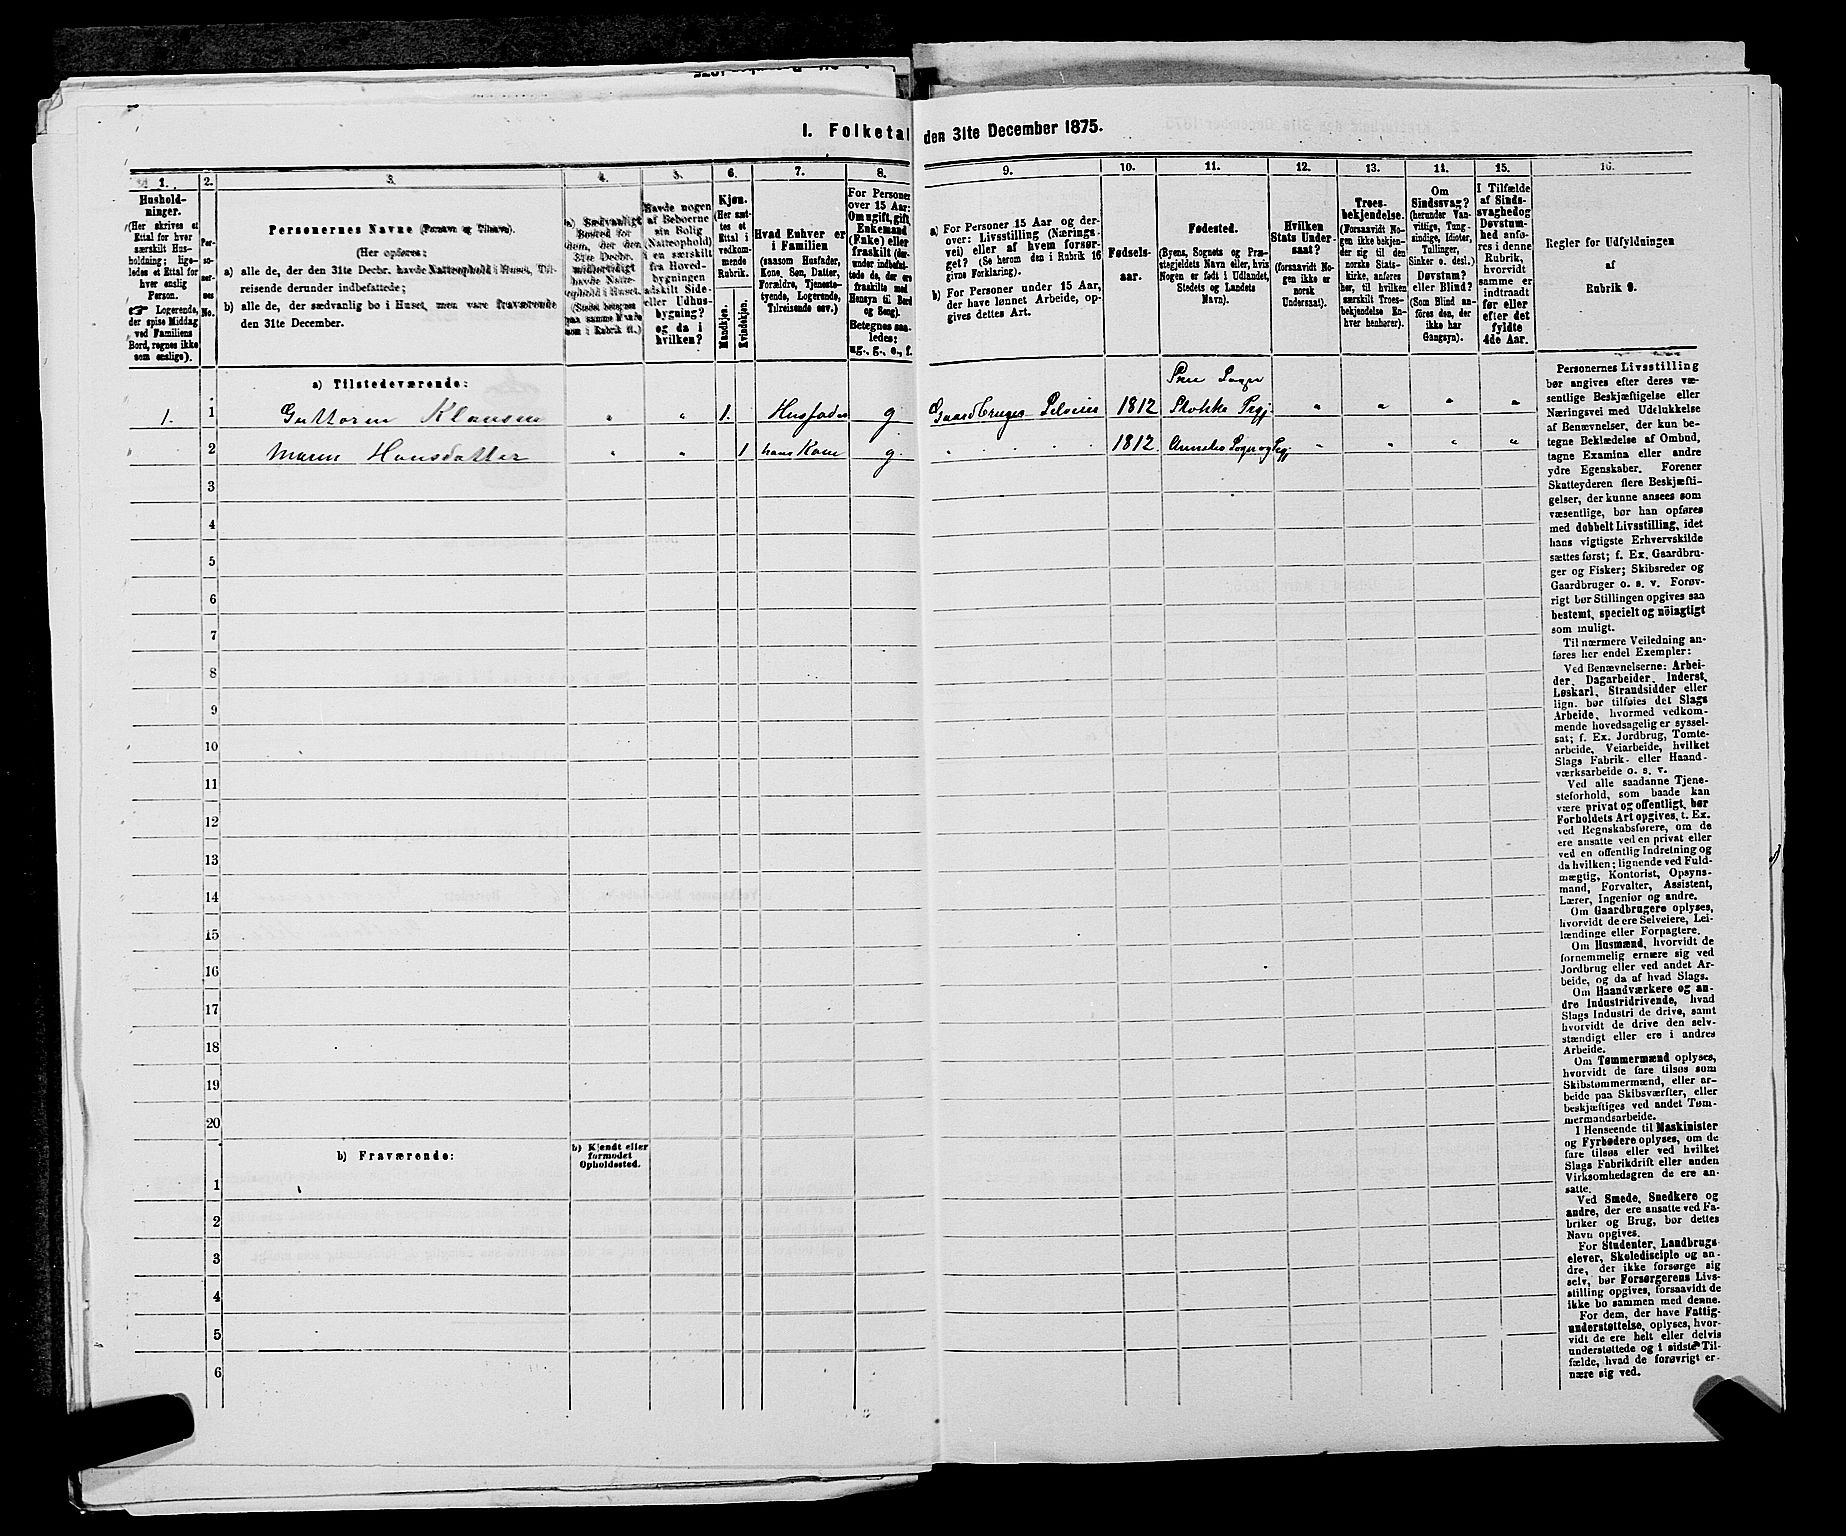 I. Folketal den 31te December 1875.
1.
Hushold-
ninger.
(Her skrives et
Ettal for hver
særskilt Hus-
holdning; lige-
ledes et Ettal for
hver enslig
Person.
☞ Logerende,
der spise Middag
ved Familiens
Bord, regnes ikke
som enslige).
2.
Per-
so-
ner-
nes
No.
3.
Personernes Navne (Fornavn og Tilnavn).
(Her opføres:
a) alle de, der den 31te Decbr. havde Natteophold i Huset, Til-
reisende derunder indbefattede;
b) alle de, der sædvanlig bo i Huset, men vare fraværende
den 31te December.
4.
a) Sædvanligt
Bosted for
dem, der den
31te Decbr.
midlertidigt
havde Natte-
ophold i Huset.
(Stedet betegnes
paa samme Maade
som i Rubrik 11.)
5.
Havde nogen
af Beboerne
sin Bolig
(Natteophold)
i en særskilt
fra Hoved-
bygningen
adskilt Side-
eller Udhus-
bygning?
og da i
hvilken?
6.
Kjøn.
(Her sæt-
tes et
Ettal i
vedkom-
mende
Rubrik.
Mandkjøn.
Kvindekjøn.
7.
Hvad Enhver er
i Familien
(saasom Husfader,
Kone, Søn, Datter,
Forældre, Tjeneste-
tyende, Logerende,
Tilreisende osv.)
8.
For Personer
over 15 Aar:
Om ugift, gift,
Enkemand
(Enke) eller
fraskilt (der-
under indbefat-
tede de, der ere
fraskilte med
Hensyn til Bord
og Seng).
Betegnes saa-
ledes:
ug., g., e., f.
9.
a) For Personer 15 Aar og der-
over: Livsstilling (Nærings-
vei) eller af hvem forsør-
get? (Se herom den i Rubrik 16
givne Forklaring).
b) For Personer under 15 Aar,
der have lønnet Arbeide, op-
gives dettes Art.
10.
Fødsels-
aar.
11.
Fødested.
(Byens, Sognets og Præ-
stegjeldets Navn eller, hvis
Nogen er født i Udlandet,
Stedets og Landets
Navn).
12.
Hvilken
Stats Under-
saat?
(forsaavidt No-
gen ikke er
norsk
Undersaat).
13.
Troes-
bekjendelse.
(Forsaavidt No-
gen ikke bekjen-
der sig til den
norske Stats-
kirke, anføres
her, til hvilken
særskilt Troes-
bekjendelse En-
hver henhører).
14.
Om
Sindssvag?
(herunder Van-
vittige, Tung-
sindige, Idioter,
Tullinger,
Sinker o. desl.).
Døvstum?
eller Blind?
(Som Blind an-
føres den, der
ikke har
Gangsyn).
15.
I Tilfælde
af Sinds-
svaghed og
Døvstum-
hed anfø-
res i denne
Rubrik,
hvorvidt
samme er
indtraadt
før eller
efter det
fyldte
4de Aar.
16.
Regler for Udfyldningen
af
Rubrik 9.
a) Tilstedeværende:
1. 1 Guttorm Klausen „ „ 1. Husfader g Gaardbruger Selveier 1812 Stokke Prgj „ „ „ „
2 Maren Hansdatter „ „ 1 hans Kone g „ 1812 „ „ „ „
3
4
5
6
7
8
9
10
11
12
13
14
15
16
17
18
19
20
b) Fraværende:
b) Kjendt eller
formodet
Opholdssted.
1
2
3
4
5
6
Personernes Livsstilling
bør angives efter deres væ-
sentlige Beskjæftigelse eller
Næringsvei med Udelukkelse
af Benævnelser, der kun be-
tegne Beklædelse af Ombud,
tagne Examina eller andre
ydre Egenskaber. Forener
Skatteyderen flere Beskjæfti-
gelser, der kunne ansees som
væsentlige, bør han opføres
med dobbelt Livsstilling, idet
hans vigtigste Erhvervskilde
sættes først; f. Ex. Gaardbru-
ger og Fisker; Skibsreder og
Gaardbruger o. s. v. Forøv-
rigt bør Stillingen opgives saa
bestemt, specielt og nöiagtigt
som muligt.
Til nærmere Veiledning an-
føres her endel Exempler:
Ved Benævnelserne: Arbei-
der, Dagarbeider, Inderst,
Løskarl, Strandsidder eller
lign. bør tilføies det Slags
Arbeide, hvormed vedkom-
mende hovedsagelig er syssel-
sat; f. Ex. Jordbrug, Tomte-
arbeide, Veiarbeide, hvilket
Slags Fabrik- eller Haand-
værksarbeide o. s. v.
Ved alle saadanne Tjene-
steforhold, som baade kan
være privat og offentligt, bør
Forholdets Art opgives, t. Ex.
ved Regnskabsførere, om de
ere ansatte ved en privat eller
ved en offentlig Indretning og
da hvilken; lignende ved Fuld-
mægtig, Kontorist, Opsyns-
mand, Forvalter, Assistent,
Lærer, Ingeniør og andre.
Om Gaardbrugere oplyses,
hvorvidt de ere Selveiere, Lei-
lændinge eller Forpagtere.
Om Husmænd, hvorvidt de
fornemmelig ernære sig ved
Jordbrug eller ved andet Ar-
beide, og da af hvad Slags.
Om Haandværkere og an-
dre Industridrivende, hvad
Slags Industri de drive, samt
hvorvidt de drive den selv-
stændigt eller ere i andres
Arbeide.
Om Tømmermænd oplyses,
hvorvidt de fare tilsøs som
Skibstømmermænd, eller ar-
beide paa Skibsværfter, eller
beskjæftiges ved andet Tøm-
mermandsarbeide.
I Henseende til Maskinister
og Fyrbødere oplyses, om de
fare tilsøs eller ved hvilket
Slags Fabrikdrift eller anden
Virksomhedsgren de ere an-
satte.
Ved Smede, Snedkere og
andre, der ere ansatte ved Fa-
briker og Brug, bør dettes
Navn opgives.
For Studenter, Landbrugs-
elever, Skoledisciple og an-
dre, der ikke forsørge sig
selv, bør Forsørgerens Livs-
stilling opgives, forsaavidt de
ikke bo sammen med denne.
For dem, der have Fattig-
understøttelse, oplyses, hvor-
vidt de ere helt eller delvis
understøttede og i sidste Til-
fælde, hvad de forøvrigt er-
nære sig ved.